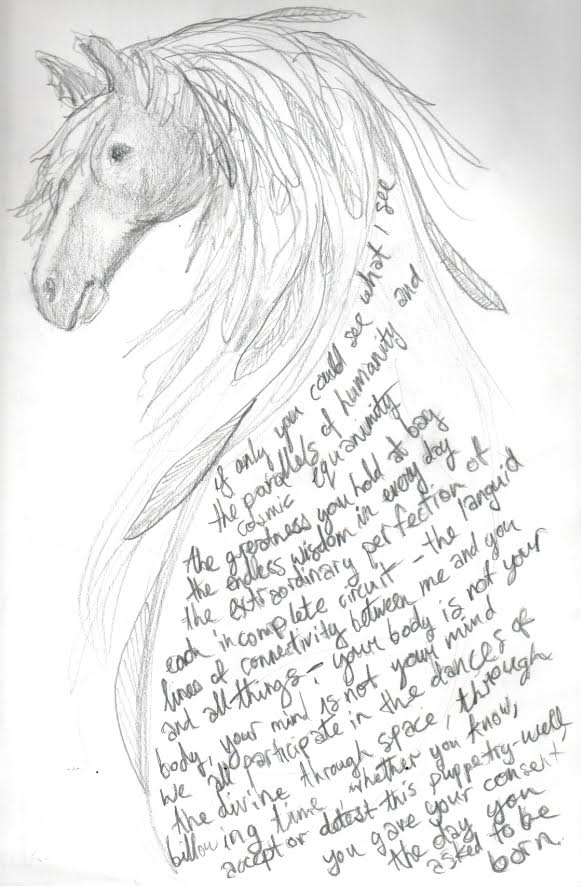 if only you could see what I see
the parallels of humanity and
cosmic equanimity
the greatness you hold at bay
the endless wisdom in every day
the extraordinary perfection of
each incomplete circuit – the languid
lines of connectivity between me and you
and all things – your body is not your
body, your mind is not your mind
we all participate in the dances of
the divine through space, through
billowing time, whether you know,
accept or detest this puppetry – well,
you gave your consent
the day you
asked to be
born.